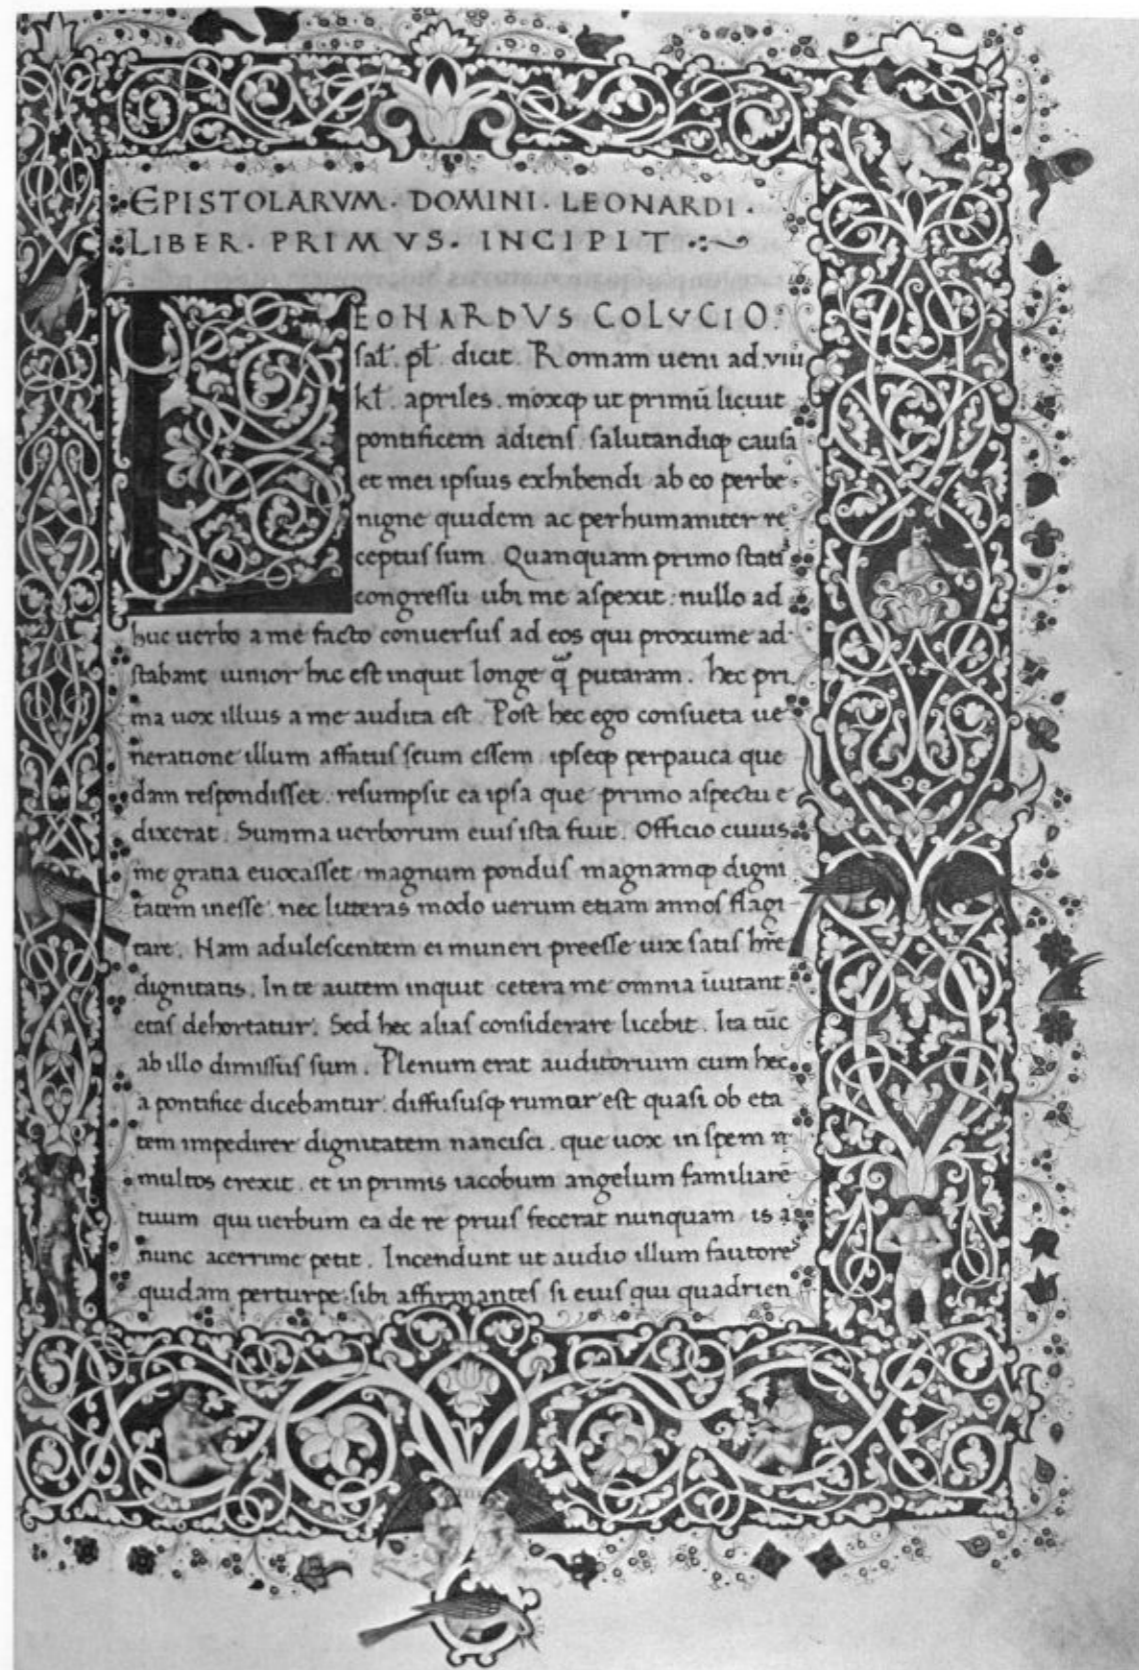 EPISTOLARVM · DOMINI · LEONARDI ·
LIBER · PRIMVS · INCIPIT
LEONARDVS COLVCIO
sal̄. pl̄. dicit. Romam ueni ad .viii
kl̄. apriles. moxqꝫ ut primū licuit
pontificem adiens salutandiqꝫ causa
et mei ipsius exhibendi ab eo perbe
nigne quidem ac perhumaniter re
ceptus sum. Quanquam primo stati
congressu ubi me aspexit: nullo ad
huc uerbo a me facto conuersus ad eos qui proxume ad
stabant iunior hic est inquit longe q̄ putaram. hec pri
ma uox illius a me audita est. Post hec ego consueta ue
neratione illum affatus essem ipseqꝫ perpauca que
dam respondisset. resumpsit ea ipsa que primo aspectu e
dixerat. Summa uerborum eius ista fuit. Officio cuius
me gratia euocasset magnum pondus magnamqꝫ digni
tatem inesse. nec litteras modo uerum etiam annos flagi
tare. Nam adulescentem ei muneri preesse uix satis hr̄e
dignitatis. In te autem inquit cetera me omnia īuitant
etas dehortatur. Sed hec alias considerare licebit. Ita tūc
ab illo dimissus sum. Plenum erat auditorium cum hec
a pontifice dicebantur. diffususqꝫ rumor est quasi ob eta
tem impedirer dignitatem nancisci. que uox in spem
multos erexit. et in primis iacobum angelum familiarē
tuum qui uerbum ea de re prius fecerat nunquam is a
nunc acerrime petit. Incendunt ut audio illum fautore
quidam perturpe sibi affirmantes si eius qui quadrien